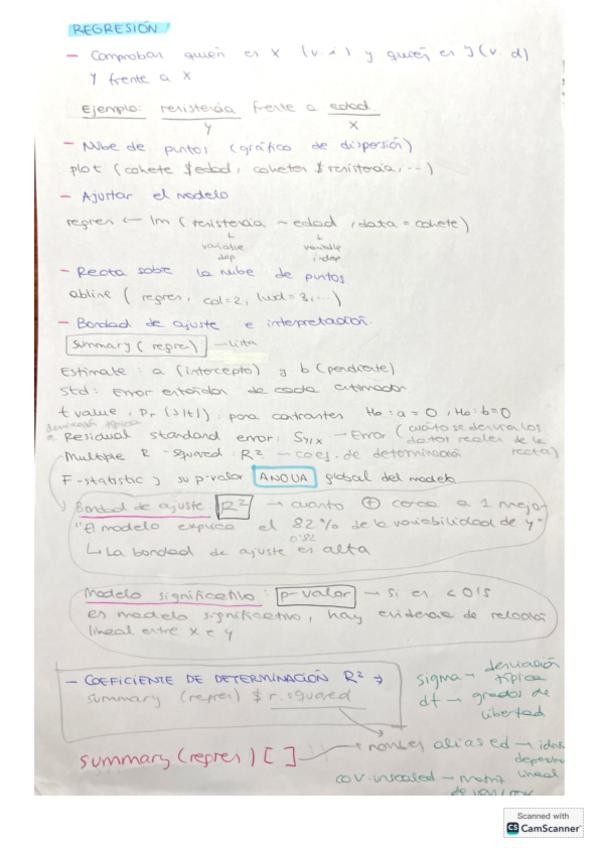 REGRESIÓN
- Comprobar quién es x (v.i) y quién es y (v.d)
y frente a x
Ejemplo: resistencia frente a edad
y x
- Nube de puntos (gráfico de dispersión)
plot (cohete $edad, cohetes $resistencia, ...)
- Ajustar el modelo
regres ← lm (resistencia ~ edad, data = cohete)
variable dep variable indep
- Recta sobre la nube de puntos
abline (regres, col=2, lwd=3, ...)
- Bondad de ajuste e interpretación.
summary (regres) - Lista
Estimate: a (intercepto) y b (pendiente)
Std: Error estándar de cada estimador
t value, Pr (>|t|): para contrastes H0: a = 0, H0: b=0
desviación típica
Residual standard error: Sy/x - Error (cuánto se desvía los datos reales de la recta)
Multiple R-squared: R² - coef. de determinación
F-statistic y su p-valor ANOVA global del modelo
Bondad de ajuste: R² → cuanto + cerca a 1 mejor
"El modelo explica el 82% de la variabilidad de y"
0'82
↳ La bondad de ajuste es alta
Modelo significativo: p-valor → Si es < 0'5
es modelo significativo, hay evidencia de relación
lineal entre x e y
- COEFICIENTE DE DETERMINACIÓN R² →
summary (regres) $ r.squared
sigma → desviación típica
df → grados de libertad
summary (regres) [ ]
→ names aliased →
lineal
cov.unscaled → matriz
Scanned with
CS CamScanner